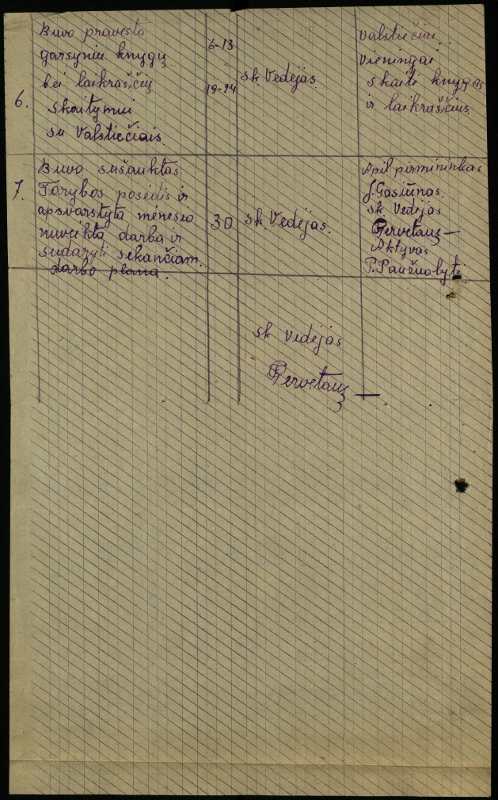 6.
Buvo pravesta
garsyniu knygų
bei laikraščių
skaitymui
su Valstiečiais.
6-13
19-24
sk Vedėjas.
Valstiečiai
vieningai
skaitė knygas
ir laikraščius
7.
Buvo sušauktas
Tarybos posėdis ir
apsvarstyta mėnesio
nuveikta darba ir
sudaryti sekančiam.
darbo plana.
30
sk Vedėjas.
Apil pirmininkas
J. Gasiūnas.
sk Vedėjas
Gervetauz
Aktyvas
P. Paužuolytė
sk vedėjas
Gervetauz